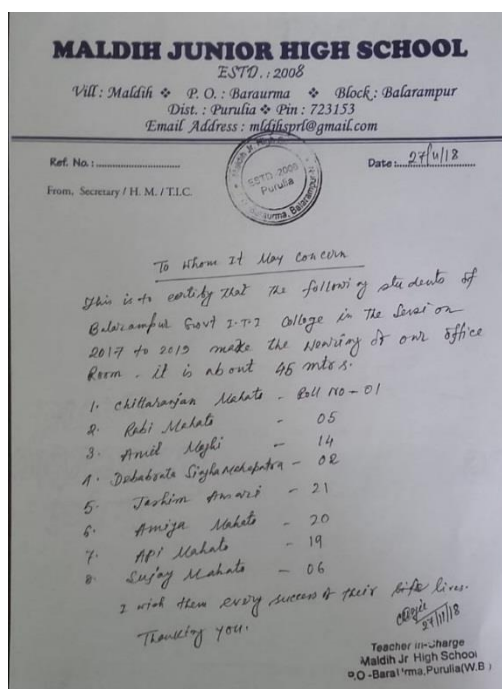 MALDIH JUNIOR HIGH SCHOOL
ESTD. : 2008
Vill : Maldih ❖ P. O. : Baraurma ❖ Block : Balarampur
Dist. : Purulia ❖ Pin : 723153
Email Address : mldjhsprl@gmail.com
Ref. No. :
Date : 27/11/18
ESTD -2008
Purulia
From, Secretary / H. M. / T.I.C.
To Whom It May Concern
This is to certify that the following students of
Balarampur Govt I.T.I College in the Session
2017 to 2019 make the Wearing of our office
Room. it is about 45 mtrs.
1. Chittaranjan Mahato - Roll No - 01
2. Rabi Mahato - 05
3. Amit Majhi - 14
4. Debabrata - 02
5. Jashim Ansari - 21
6. Amiya Mahato - 20
7. Api Mahato - 19
8. Sujay Mahato - 06
I wish them every success of their life lives.
Thanking you.
27/11/18
Teacher In-Charge
Maldih Jr High School
P.O -Baraurma, Purulia(W.B)